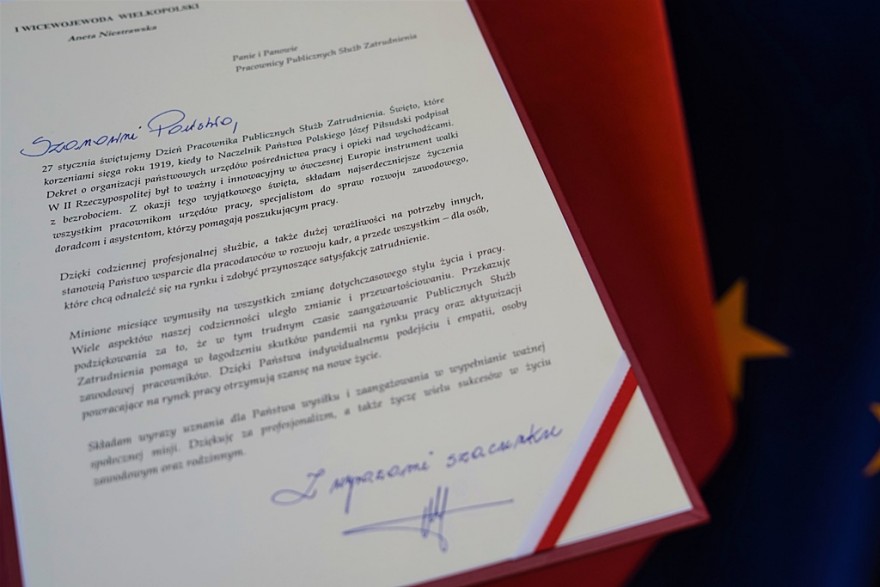 I WICEWOJEWODA WIELKOPOLSKI
Aneta Niestrawska
Panie i Panowie
Pracownicy Publicznych Służb Zatrudnienia
Szanowni Państwo,
27 stycznia świętujemy Dzień Pracownika Publicznych Służb Zatrudnienia. Święto, które
korzeniami sięga roku 1919, kiedy to Naczelnik Państwa Polskiego Józef Piłsudski podpisał
Dekret o organizacji państwowych urzędów pośrednictwa pracy i opieki nad wychodźcami.
W II Rzeczypospolitej był to ważny i innowacyjny w ówczesnej Europie instrument walki
z bezrobociem. Z okazji tego wyjątkowego święta, składam najserdeczniejsze życzenia
wszystkim pracownikom urzędów pracy, specjalistom do spraw rozwoju zawodowego,
doradcom i asystentom, którzy pomagają poszukującym pracy.
Dzięki codziennej profesjonalnej służbie, a także dużej wrażliwości na potrzeby innych,
stanowią Państwo wsparcie dla pracodawców w rozwoju kadr, a przede wszystkim – dla osób,
które chcą odnaleźć się na rynku i zdobyć przynoszące satysfakcję zatrudnienie.
Minione miesiące wymusiły na wszystkich zmianę dotychczasowego stylu życia i pracy.
Wiele aspektów naszej codzienności uległo zmianie i przewartościowaniu. Przekazuję
podziękowania za to, że w tym trudnym czasie zaangażowanie Publicznych Służb
Zatrudnienia pomaga w łagodzeniu skutków pandemii na rynku pracy oraz aktywizacji
zawodowej pracowników. Dzięki Państwa indywidualnemu podejściu i empatii, osoby
powracające na rynek pracy otrzymują szansę na nowe życie.
Składam wyrazy uznania dla Państwa wysiłku i zaangażowania w wypełnianie ważnej
społecznej misji. Dziękuję za profesjonalizm, a także życzę wielu sukcesów w życiu
zawodowym oraz rodzinnym.
Z wyrazami szacunku